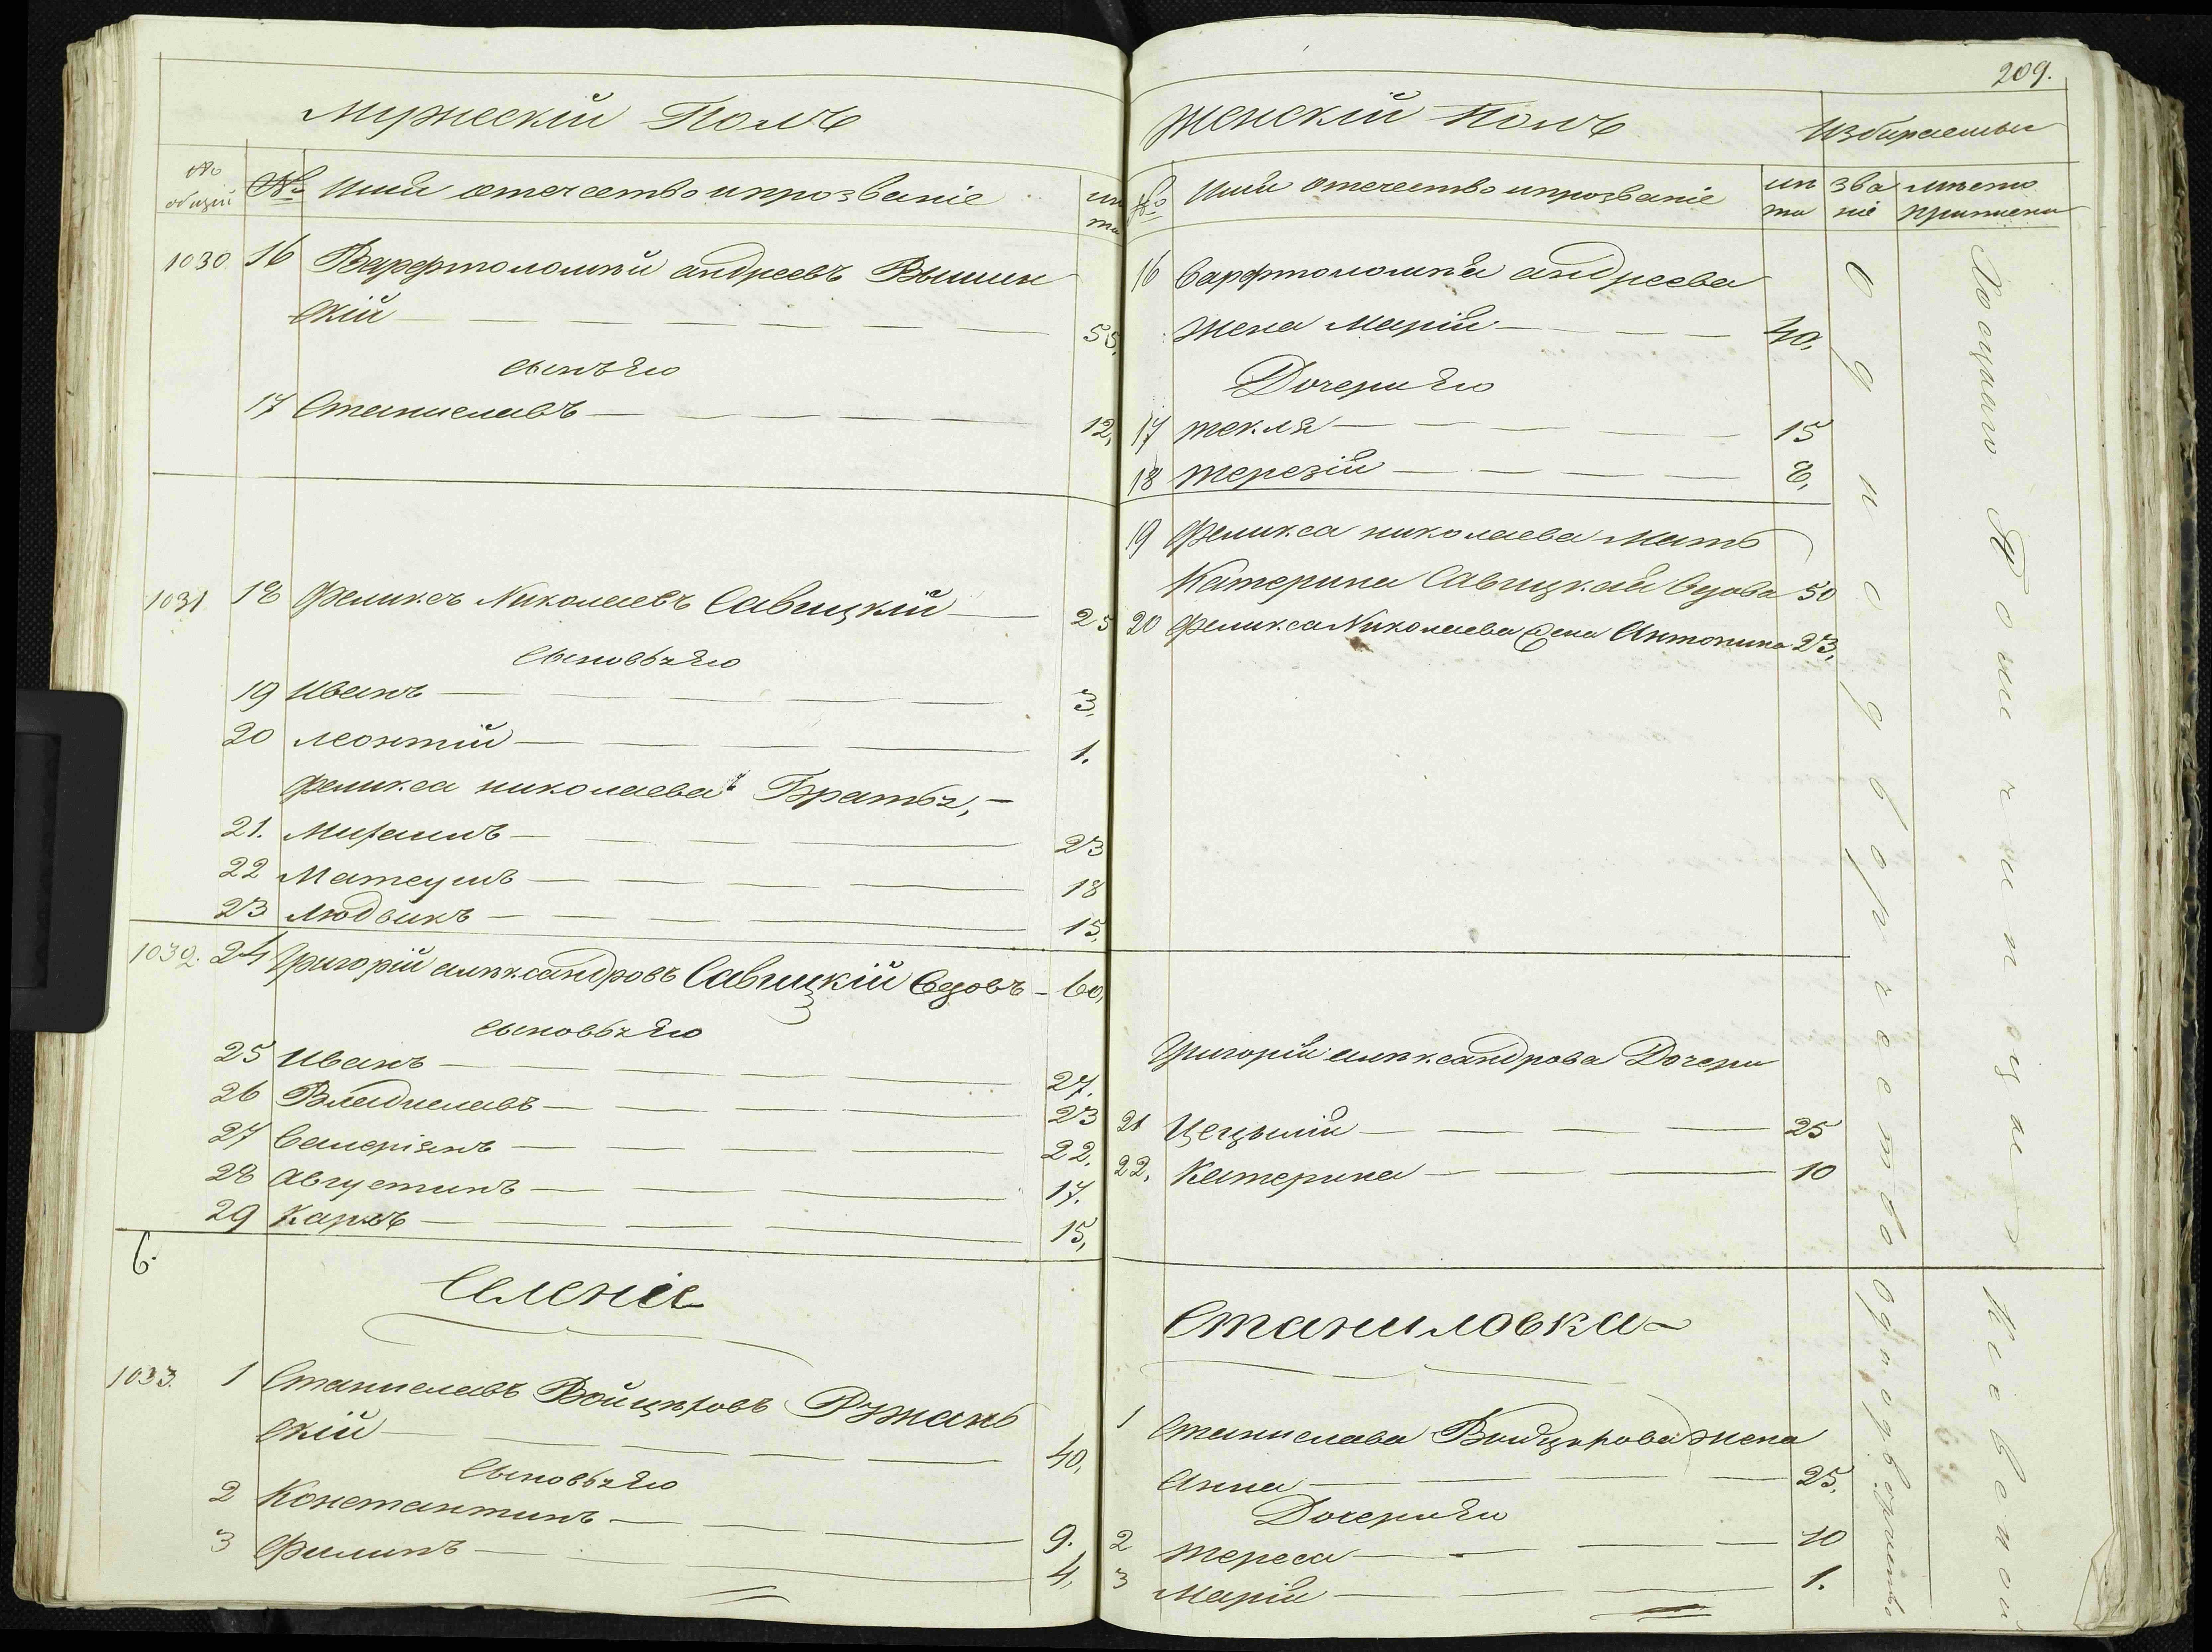 209.
Мужескій Полъ
№ общій
№
Имя отечество и прозваніе
лѣта
1030 16 Варфтоломѣй андреевъ Вышин
скій — 55,
сынъ Его
17 Станиславъ — 12,
1031 18 Феликсъ Николаевъ Савицкій — 25
Сыновья Его
19 Иванъ — 3,
20 леонтій — 1.
Феликса николаева Братья, —
21. Михаилъ — 23
22 Матеушъ — 18
23 Людвикъ — 15,
1032. 24 Григорій алѣксандровъ Савицкій вдовъ — 60,
сыновья Его
25 Иванъ — 27.
26 Владиславъ — 23
27 Валеріянъ — 22.
28 Августинъ — 17.
29 Карлъ — 15,
6.
Селеніе
1033. 1 Станиславъ Войцѣховъ Ружань
скій — 40,
Сыновья Его
2 Константинъ — 9.
3 Филипъ — 4,
Женскій Полъ
Избираемыи
№
Имя отечество и прозваніе
зва ніе
мѣсто приписки
16 Варфтоломѣя андреева
жена Марія — 40,
Дочери Его
17 текля — 15
18 терезія — 8,
19 Феликса николаева мать
Катерина Савицкая вдова 50
20 Феликса Николаева жена Антонина 23,
Григорія алѣксандрова Дочери
21 Цецылія — 25
22, Катерина — 10
Станиловка
1 Станислава Войцѣхова жена
Анна — 25,
Дочери Его
2 тереса — 10
3 Марія — 1.
Однодворчество
Однодворчество
Кіевской